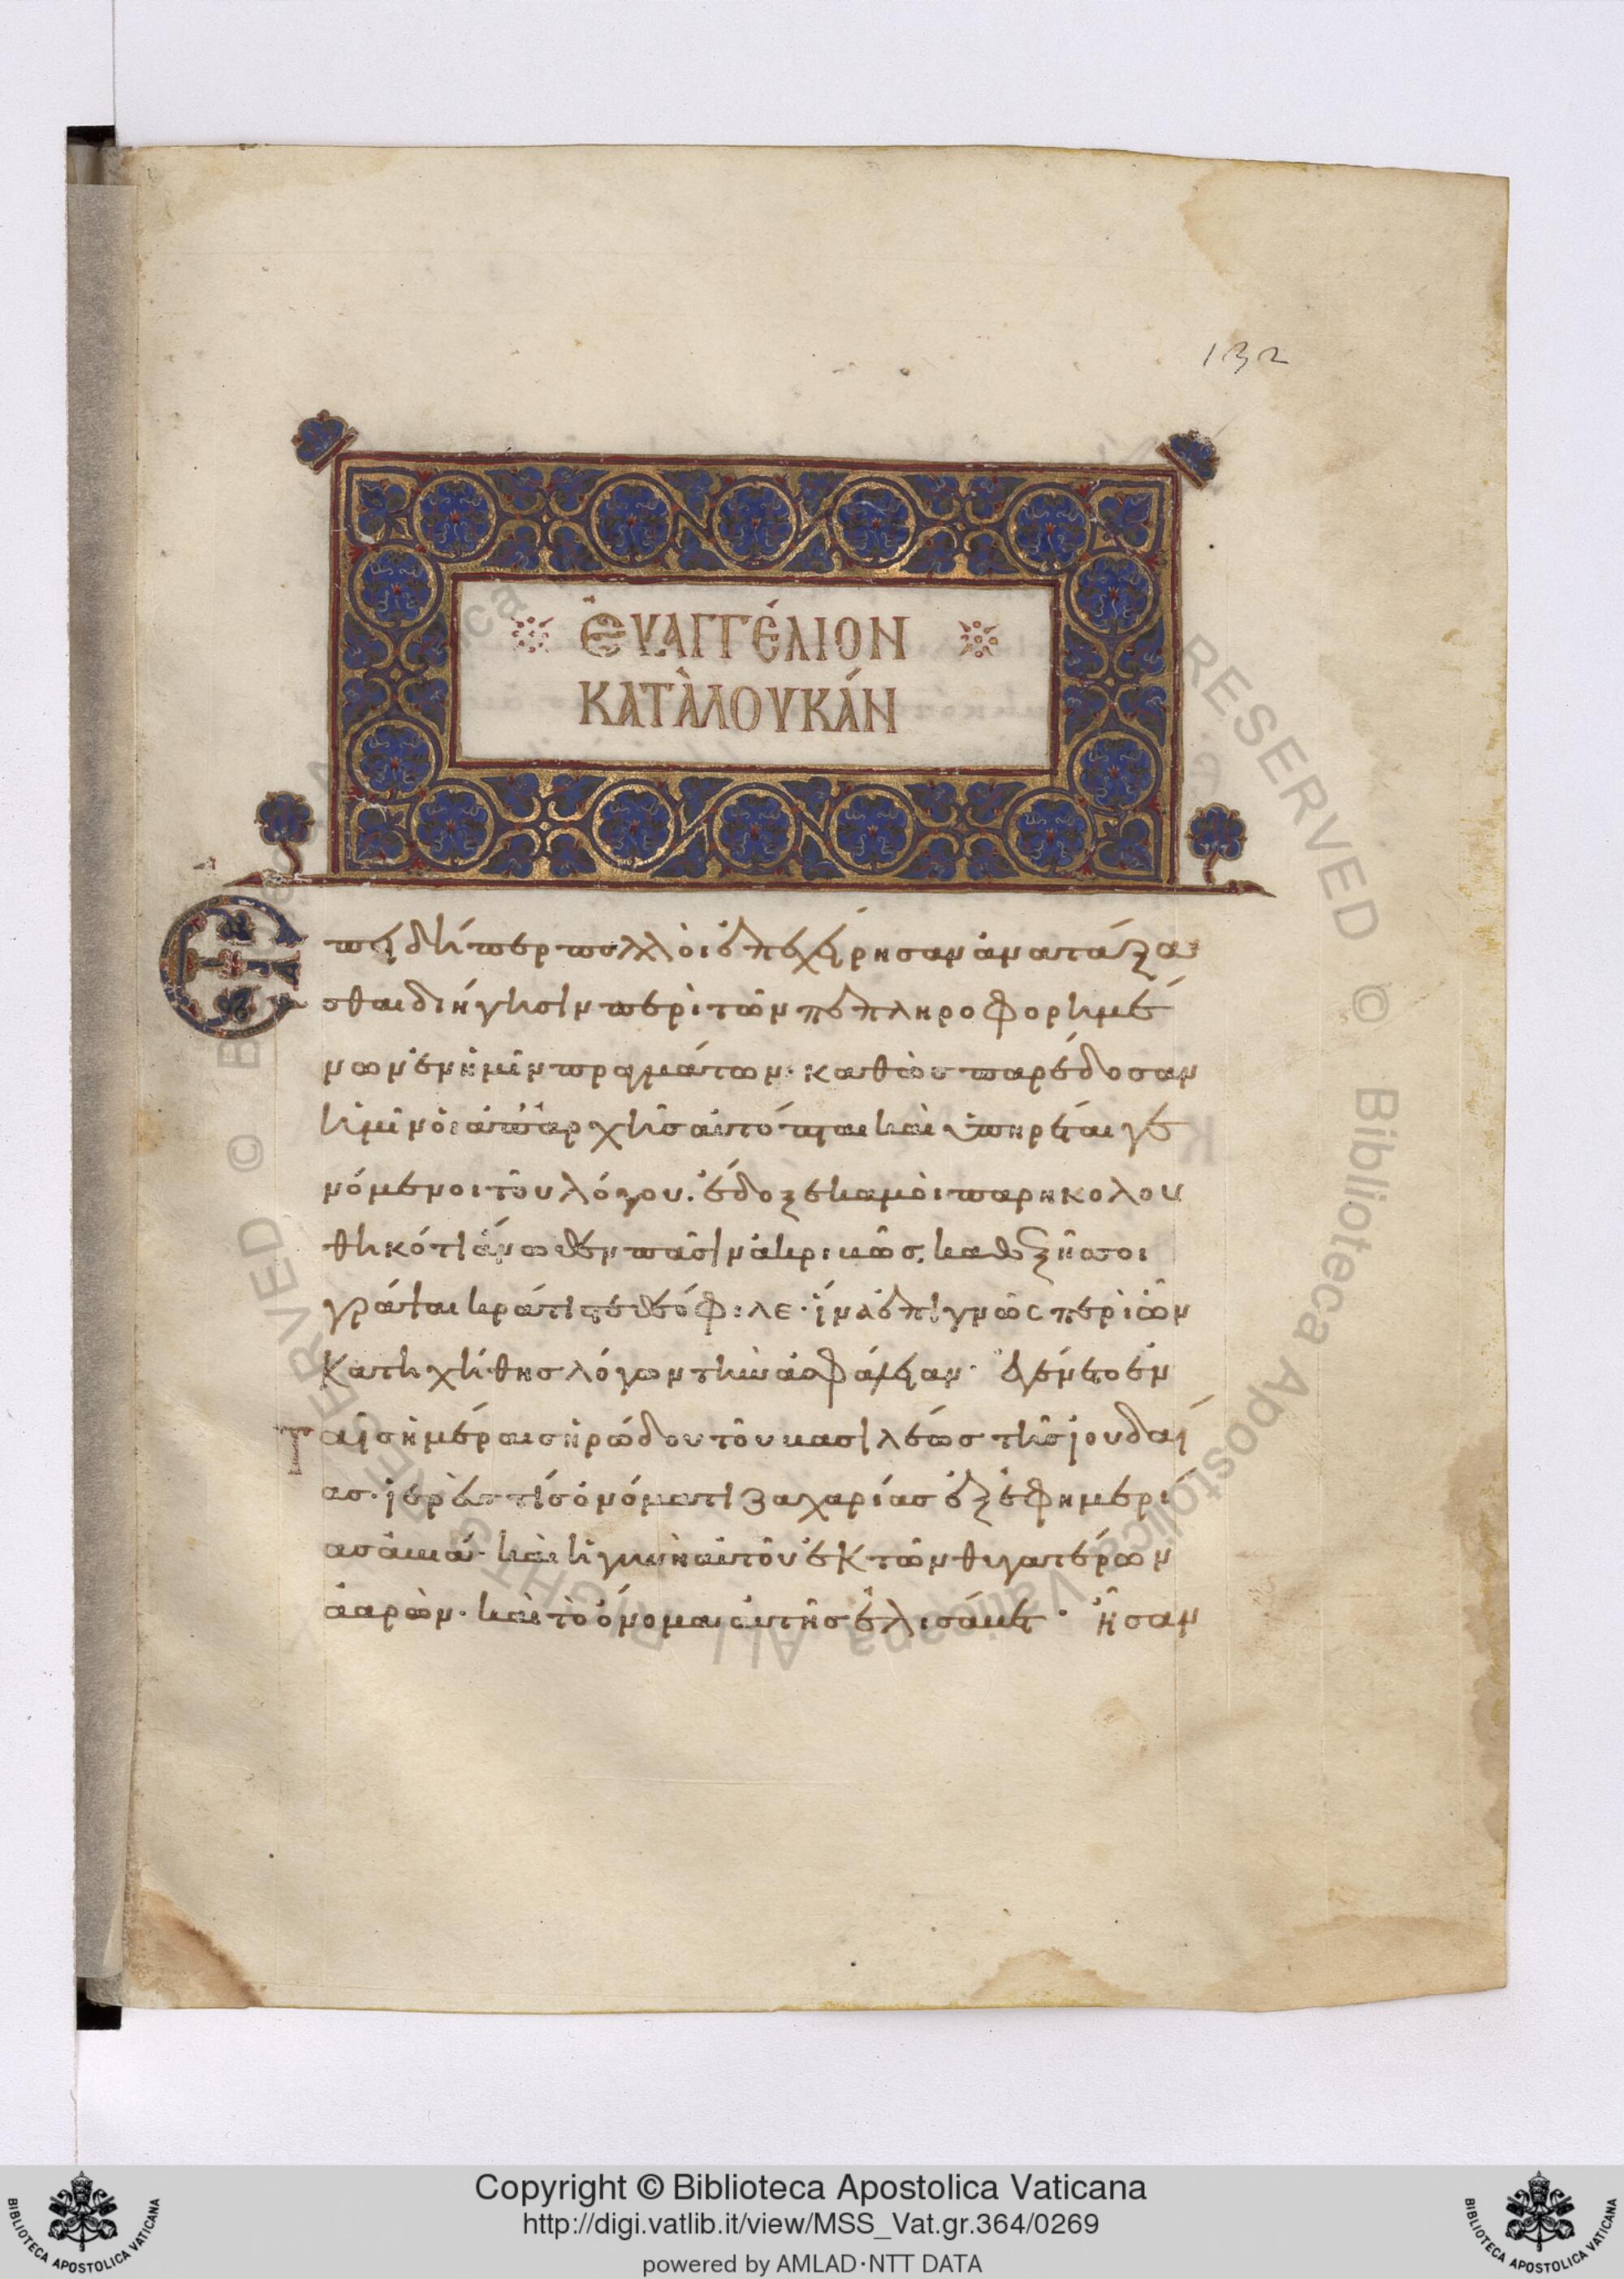 132
ἘΥΑΓΓΈΛΙΟΝ
ΚΑΤᾺΛΟΥΚΆΝ
Ἐπειδήπερ πολλοὶ ἐπεχείρησαν ἀνατάξα
σθαι διήγησιν περὶ τῶν πεπληροφορημέ
νων ἐν ἡμῖν πραγμάτων· καθὼς παρέδοσαν
ἡμῖν οἱ ἀπ' ἀρχῆς αὐτόπται καὶ ὑπηρέται γε
νόμενοι τοῦ λόγου. ἔδοξε καμοὶ παρηκολου
θηκότι ἄνωθεν πᾶσιν ἀκριβῶς, καθεξῆς σοι
γράψαι κράτιστε θεόφιλε· ἵνα ἐπιγνῶς περὶ ὧν
κατηχήθης λόγων τὴν ἀσφάλειαν· Ἐγένετο ἐν
ταῖς ἡμέραις ἡρώδου τοῦ βασιλέως τῆς ἰουδαί
ας· ἱερεύς τις ὀνόματι ζαχαρίας ἐξ ἐφημερί
ας ἀβιά· καὶ ἡ γυνὴ αὐτοῦ ἐκ τῶν θυγατέρων
ἀαρών· καὶ τὸ ὄνομα αὐτῆς ἐλισάβετ· ἦσαν
© Biblioteca Apostolica Vaticana ALL RIGHTS RESERVED
Copyright © Biblioteca Apostolica Vaticana
http://digi.vatlib.it/view/MSS_Vat.gr.364/0269
powered by AMLAD·NTT DATA
BIBLIOTECA APOSTOLICA VATICANA
BIBLIOTECA APOSTOLICA VATICANA